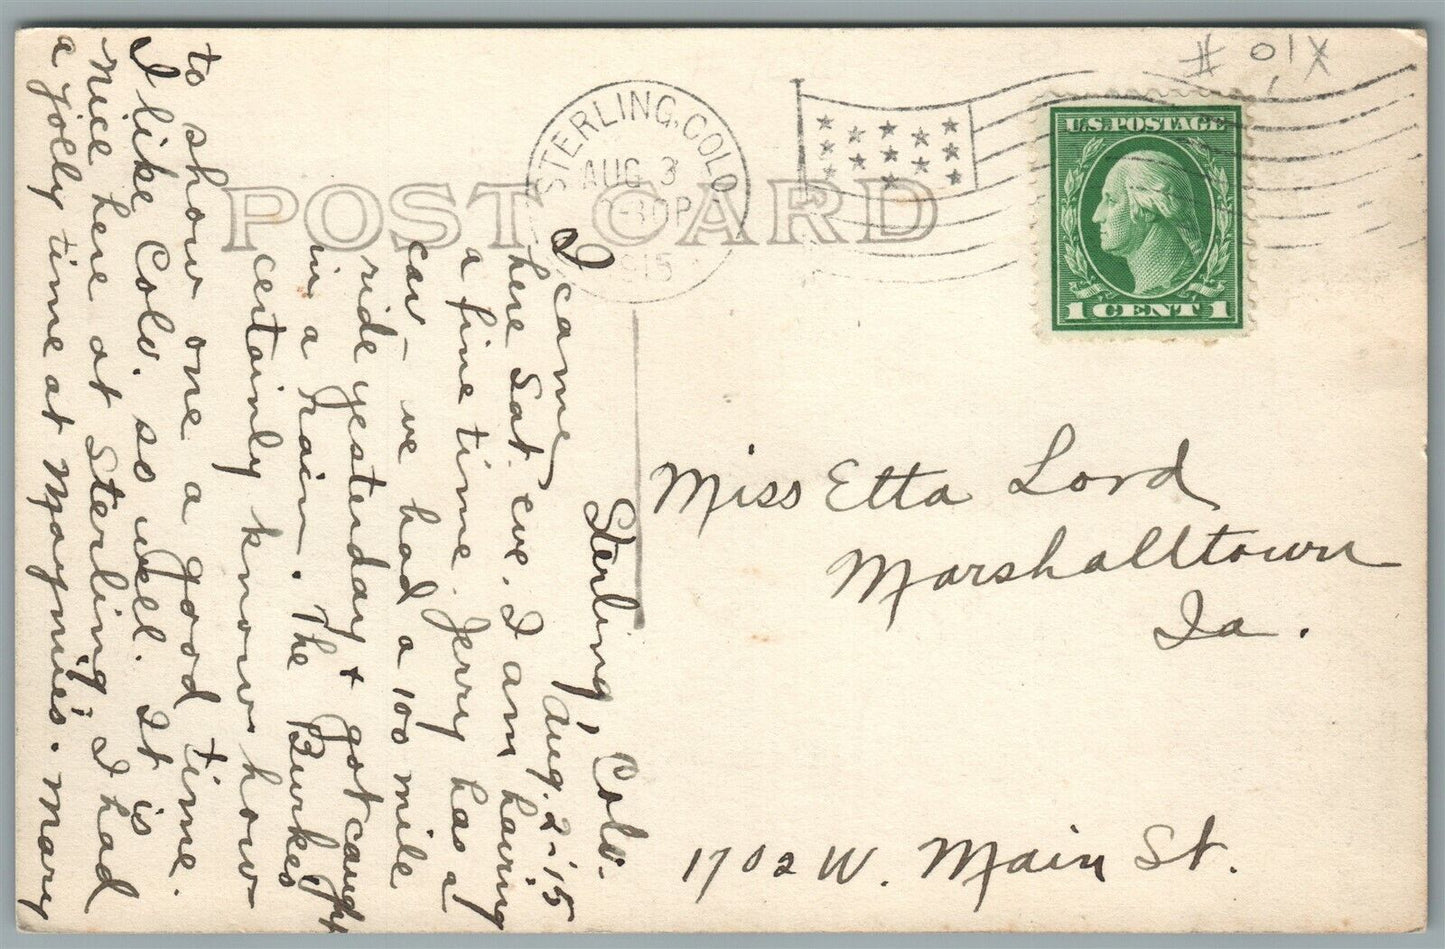 Sterling, Colo.
Aug. 2-'15
I came
here Sat. eve. I am having
a fine time. Jerry has a
car – we had a 100 mile
ride yesterday & got caught
in a rain. The Burkes
certainly know how
to show one a good time.
I like Colo. so well. It is
nice here at Sterling. I had
a jolly time at Maymie's. Mary
POST CARD
STERLING, COLO.
AUG 3
30P
1915
# 01X
U.S. POSTAGE
1 CENT 1
Miss Etta Lord
Marshalltown
Ia.
1702 W. Main St.